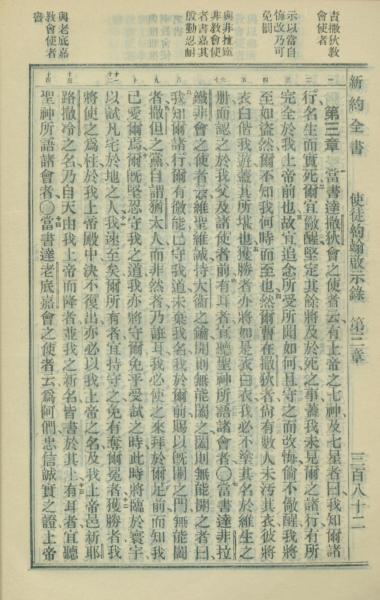 新約全書　使徒約翰啟示錄　第三章　三百八十二
責撒狄教
會使者
示以當自
悔改乃可
免罰
與非拉鐵
非教會使
者書嘉其
殷勤忍耐
與老底嘉
教會使者
書
第三章　當書達撒狄會之使者云有上帝之七神及七星者曰我知爾諸
行名生而實死爾宜儆醒堅定其餘將及於死之事蓋我未見爾之諸行有所
完全於我上帝前也故宜追念所受所聞如何且守之而改悔倘不儆醒我將
至如盜然爾不知我何時而至也然爾曹在撒狄者尚有數人未污其衣彼將
衣白偕我遊蓋其所堪也獲勝者亦將如是衣白衣我必不塗其名於維生之
冊而認之於我父及諸使者前有耳者宜聽聖神所語諸會者〇當書達非拉
鐵非會之使者云維聖維誠持大衛之鑰開則無能闔之闔則無能開之者曰
我知爾諸行爾有微能已守我道未棄我名我於爾前賜以既開之門無能闔
者撒但之黨自謂猶太人而非然者乃誑耳我必使之來拜於爾足前而知我
已愛爾焉爾既堅忍守我之道我亦將守爾免乎受試之時此時將臨於寰宇
以試凡宅於地之人我速至矣爾所有者宜持守之免有奪爾冕者獲勝者我
將使之爲柱於我上帝殿中決不復出亦必以我上帝之名及我上帝邑新耶
路撒冷之名乃自天由我上帝而降者並我之新名皆書於其上有耳者宜聽
聖神所語諸會者〇當書達老底嘉會之使者云爲阿們忠信誠實之證上帝